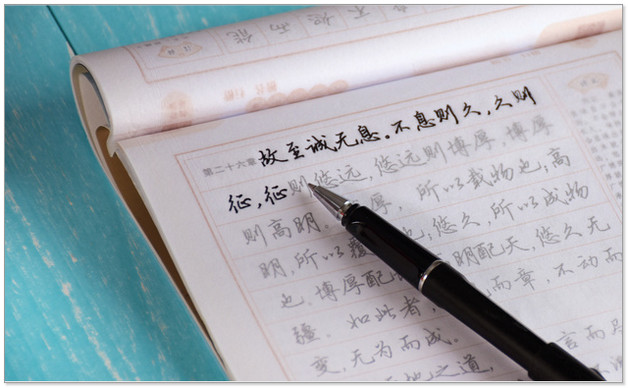 第二十六章 故至诚无息。不息则久,久则
征,征则悠远,悠远则博厚,博厚
则高明。厚,所以载物也;高
明,所以覆也;悠久,所以成物
也。博厚配明配天,悠久无
疆。如此者,而章,不动而
变,无为而成。
地之道,言而